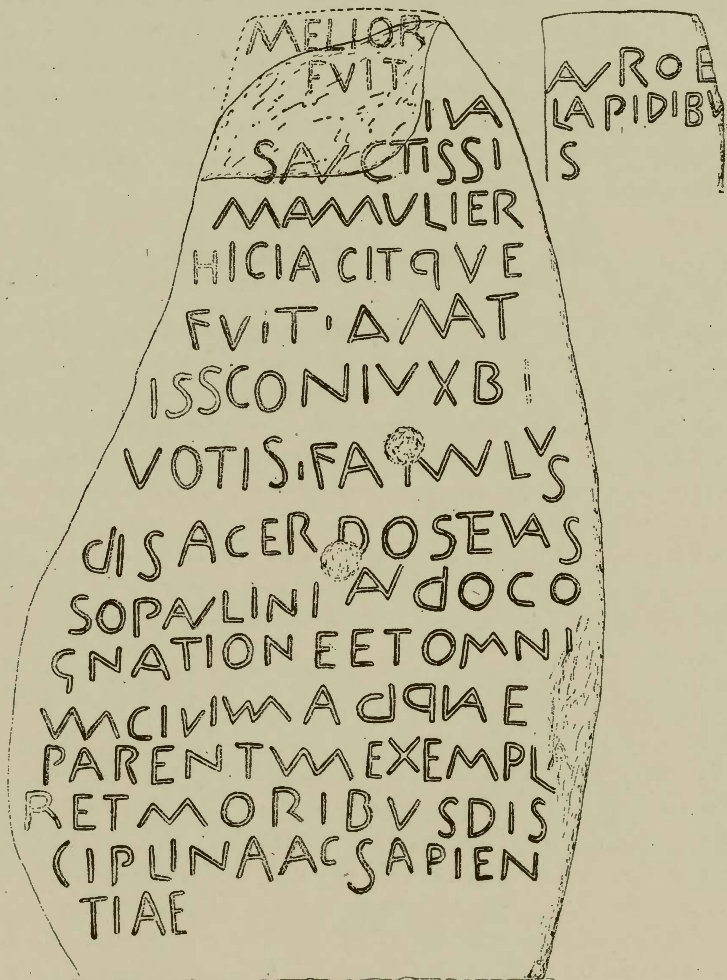 MELIOR
FVIT
IVA
SANCTISSI
MAMVLIER
HICIACITQVE
FVIT·AMAT
ISSCONIVXBI
VOTIS·FAMVLVS
dISACERDOSEVAS
SOPAVLINI AVdOCO
GNATIONEETOMNI
VMCIVIVMAdQVAE
PARENTVMEXEMPL
RETMORIBVSDIS
CIPLINAACSAPIEN
TIAE
AVROE
LAPIDIBV
S